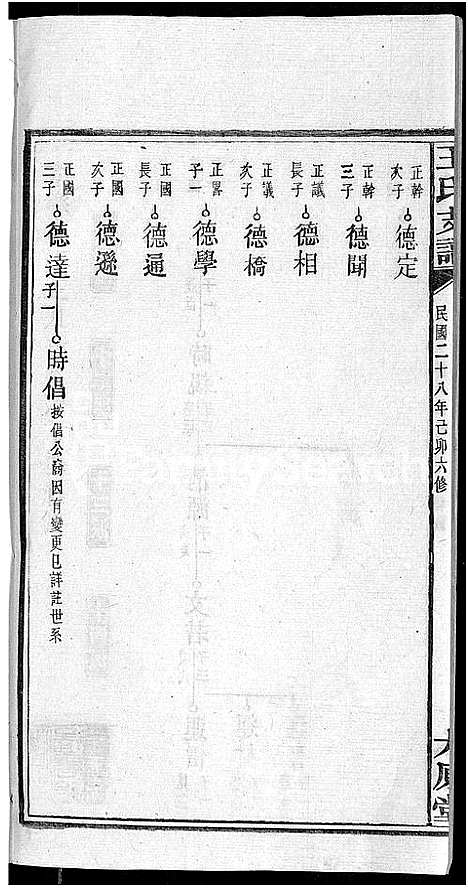 王氏支譜
民國二十八年己卯六修
太原堂
正幹次子 德定
正幹三子 德聞
正議長子 德相
正議次子 德橋
正畧子一 德學
正國長子 德通
正國次子 德遜
正國三子 德達 子一 時倡 按倡公裔因有變更已詳註世系